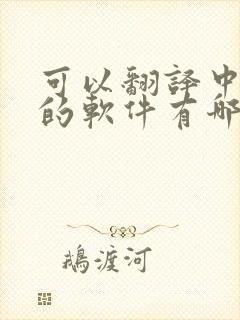 可以翻譯中
的軟件有哪
鵝渡河